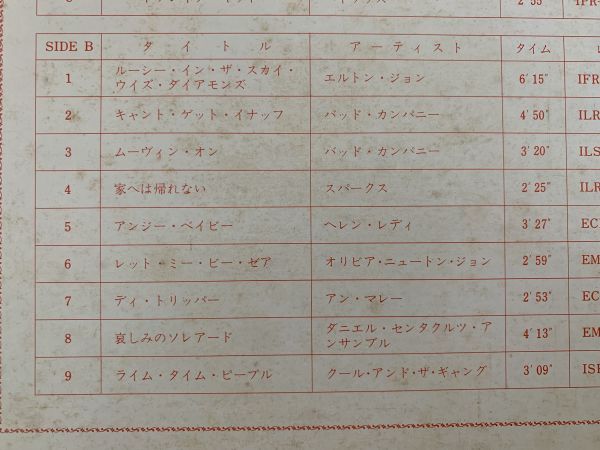 2′55″
SIDE B タイトル アーティスト タイム
1 ルーシー・イン・ザ・スカイ・ウイズ・ダイアモンズ エルトン・ジョン 6′15″ IFR
2 キャント・ゲット・イナッフ バッド・カンパニー 4′50″ ILR
3 ムーヴィン・オン バッド・カンパニー 3′20″ ILS
4 家へは帰れない スパークス 2′25″ ILR
5 アンジー・ベイビー ヘレン・レディ 3′27″ EC
6 レット・ミー・ビー・ゼア オリビア・ニュートン・ジョン 2′59″ EM
7 ディ・トリッパー アン・マレー 2′53″ EC
8 哀しみのソレアード ダニエル・センタクルツ・アンサンブル 4′13″ EM
9 ライム・タイム・ピープル クール・アンド・ザ・ギャング 3′09″ ISE